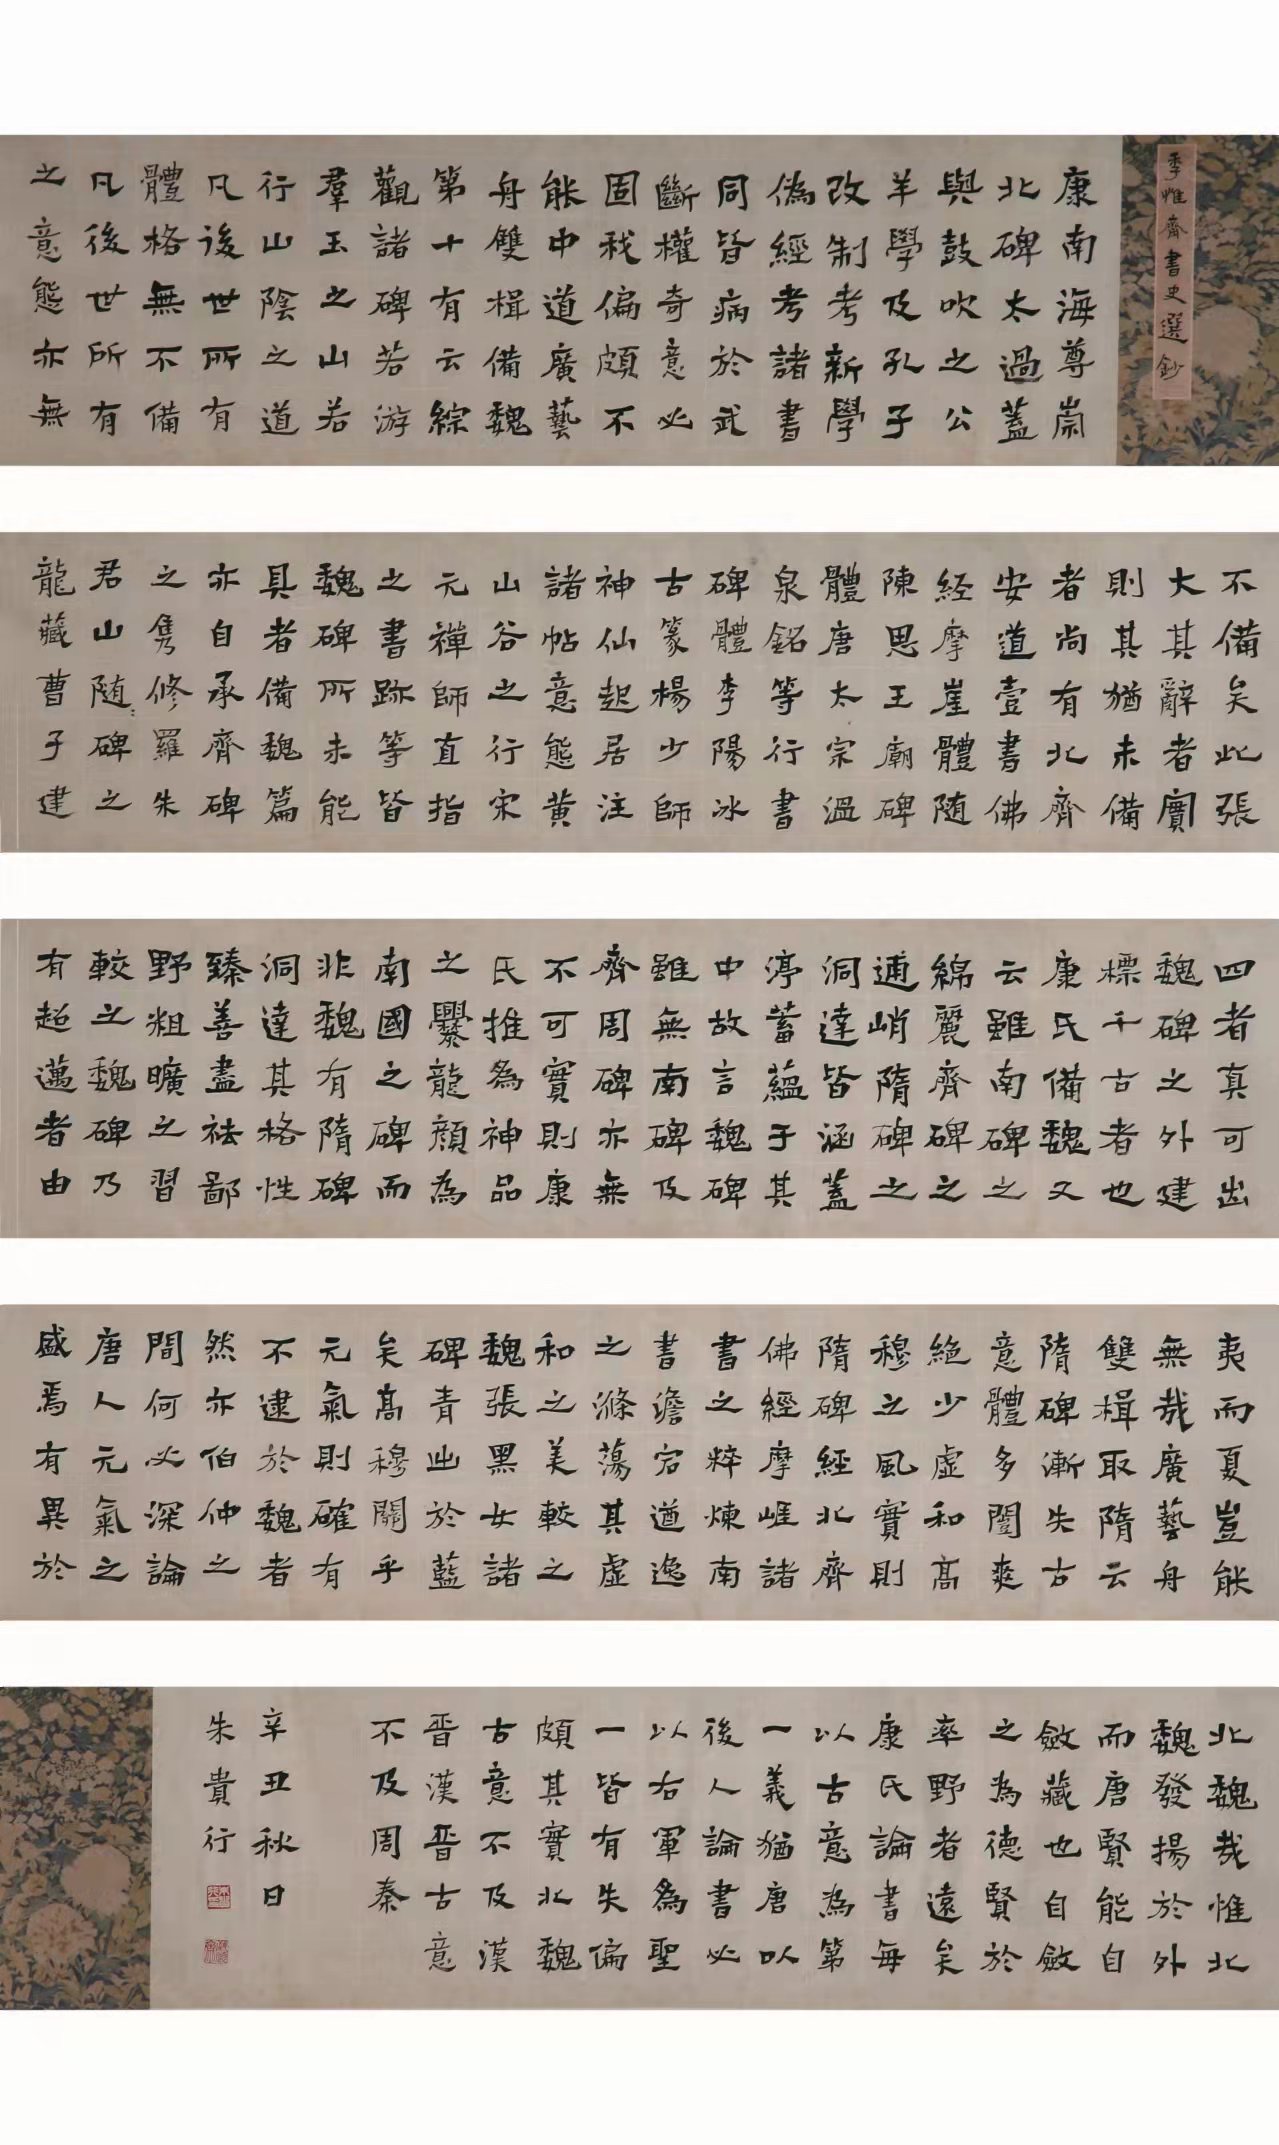 季惟齋書史選鈔
康南海尊崇
北碑太過蓋
與鼓吹之公
羊學及孔子
改制考新學
偽經考諸書
同皆病於武
斷權奇意必
固我偏頗不
能中道廣藝
舟雙楫備魏
第十有云綜
觀諸碑若游
羣玉之山若
行山陰之道
凡後世所有
體格無不備
凡後世所有
之意態亦無
不備矣此張
大其辭者實
則其猶未備
者尚有北齊
安道壹書佛
經摩崖體随
陳思王廟碑
體唐太宗温
泉銘等行書
碑體李陽冰
古篆楊少師
神仙起居注
諸帖意態黄
山谷之行宋
元禪師直指
之書跡等皆
魏碑所未能
具者備魏篇
亦自承齊碑
之雋修羅朱
君山随碑之
龍藏曹子建
四者真可出
魏碑之外建
標千古者也
康氏備魏又
云雖南碑之
綿麗齊碑之
逋峭隋碑之
洞達皆涵蓋
渟蓄蘊于其
中故言魏碑
雖無南碑及
齊周碑亦無
不可實則康
氏推為神品
之爨龍顔為
南國之碑而
非魏有隋碑
洞達其格性
臻善盡祛鄙
野粗曠之習
較之魏碑乃
有超邁者由
夷而夏豈能
無哉廣藝舟
雙楫取隋云
隋碑漸失古
意體多闓爽
絶少虚和高
穆之風實則
隋碑經北齊
佛經摩崖諸
書之粹煉南
書澹宕遒逸
之滌蕩其虚
和之美較之
魏張黑女諸
碑青出於藍
矣高穆關乎
元氣則確有
不逮於魏者
然亦伯仲之
間何必深論
唐人元氣之
盛焉有異於
北魏哉惟北
魏發揚於外
而唐賢能自
斂藏也自斂
之為德賢於
率野者遠矣
康氏論書每
以古意為第
一義猶唐以
後人論書必
以右軍為聖
一皆有失偏
頗其實北魏
古意不及漢
晋漢晋古意
不及周秦
辛丑秋日
朱貴行